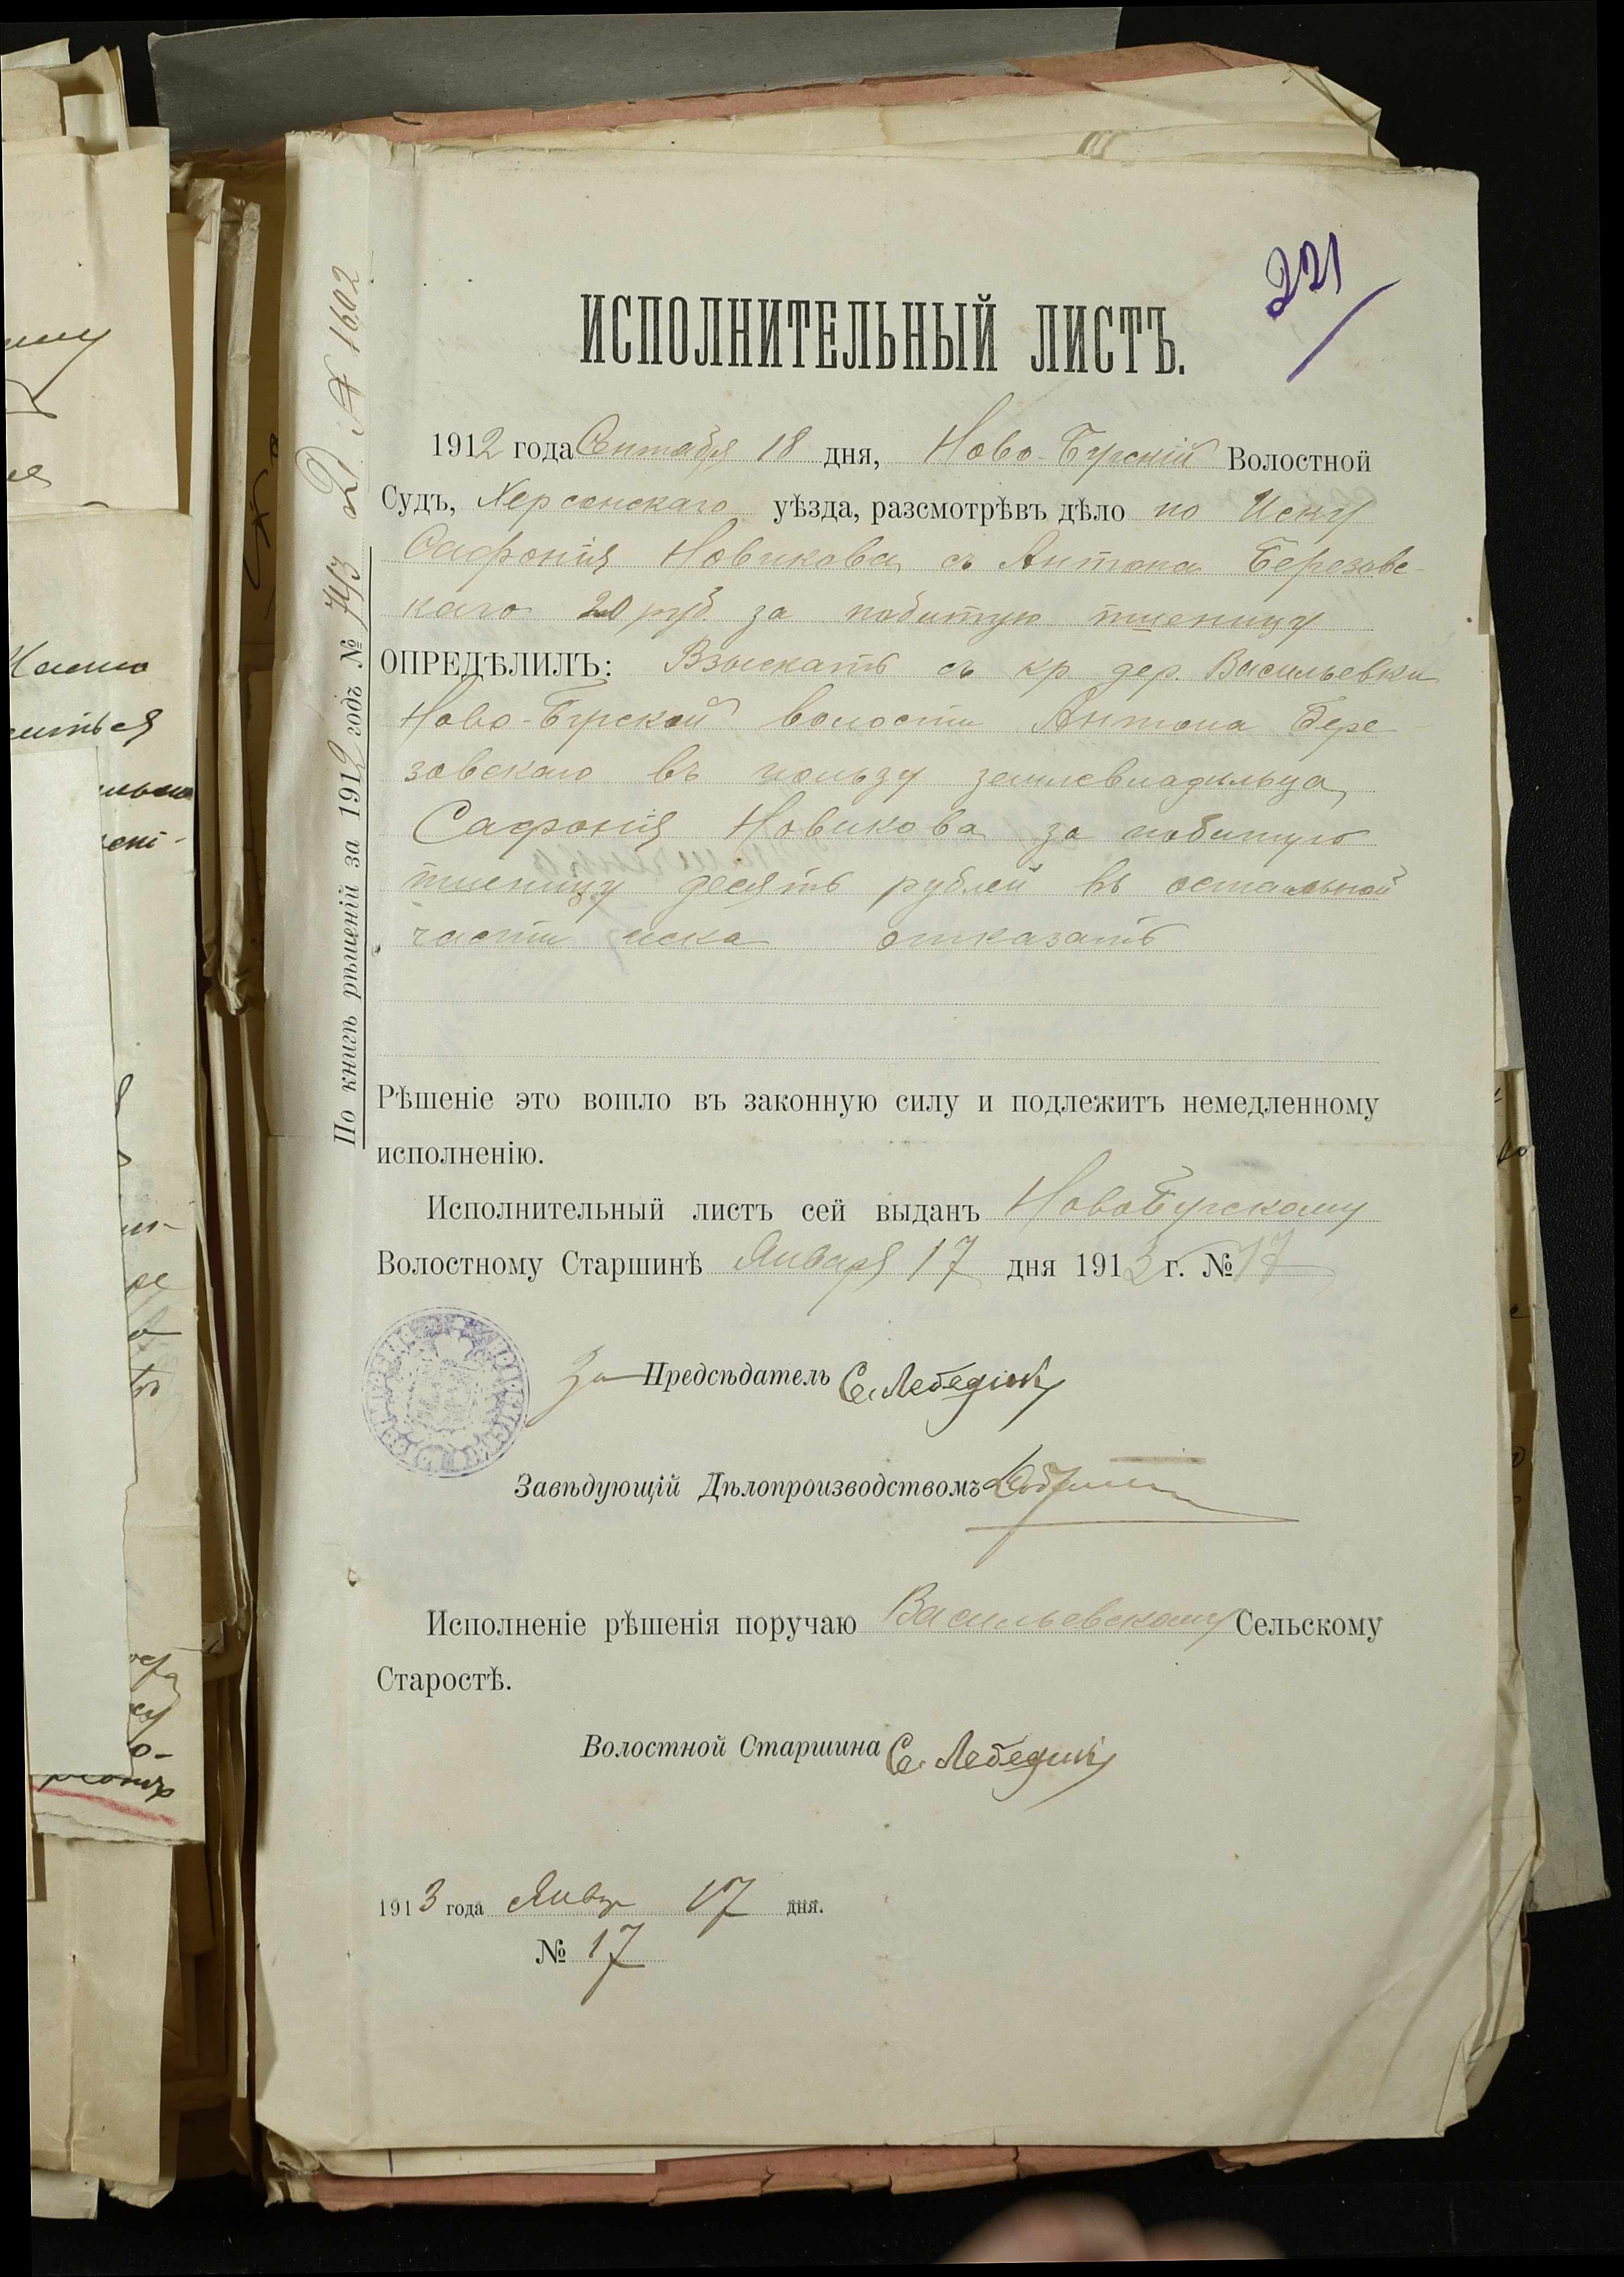 221
ИСПОЛНИТЕЛЬНЫЙ ЛИСТЪ.
1912 года Сентября 18 дня, Ново-Бугскій Волостной
Судъ, Херсонскаго уѣзда, разсмотрѣвъ дѣло по Иску
Сафронія Новикова съ Антона Березовс-
каго 20 руб. за побитую пшеницу
ОПРЕДѢЛИЛЪ: Взыскать съ кр. дер. Васильевки
Ново-Бугской волости Антона Бере
зовскаго въ пользу землевладѣльца
Сафронія Новикова за побитую
пшеницу десять рублей въ остальной
части иска отказать
Рѣшеніе это вошло въ законную силу и подлежитъ немедленному
исполненію.
Исполнительный листъ сей выданъ НовоБугскому
Волостному Старшинѣ Января 17 дня 1913 г. № 17
За Предсѣдатель Се. Лебедикъ
Завѣдующій Дѣлопроизводствомъ
Исполненіе рѣшенія поручаю Васильевскому Сельскому
Старостѣ.
Волостной Старшина Се. Лебедикъ
1913 года Янвр 17 дня.
№ 17
По книгѣ рѣшеній за 1912 годъ № 773
Д № 1602